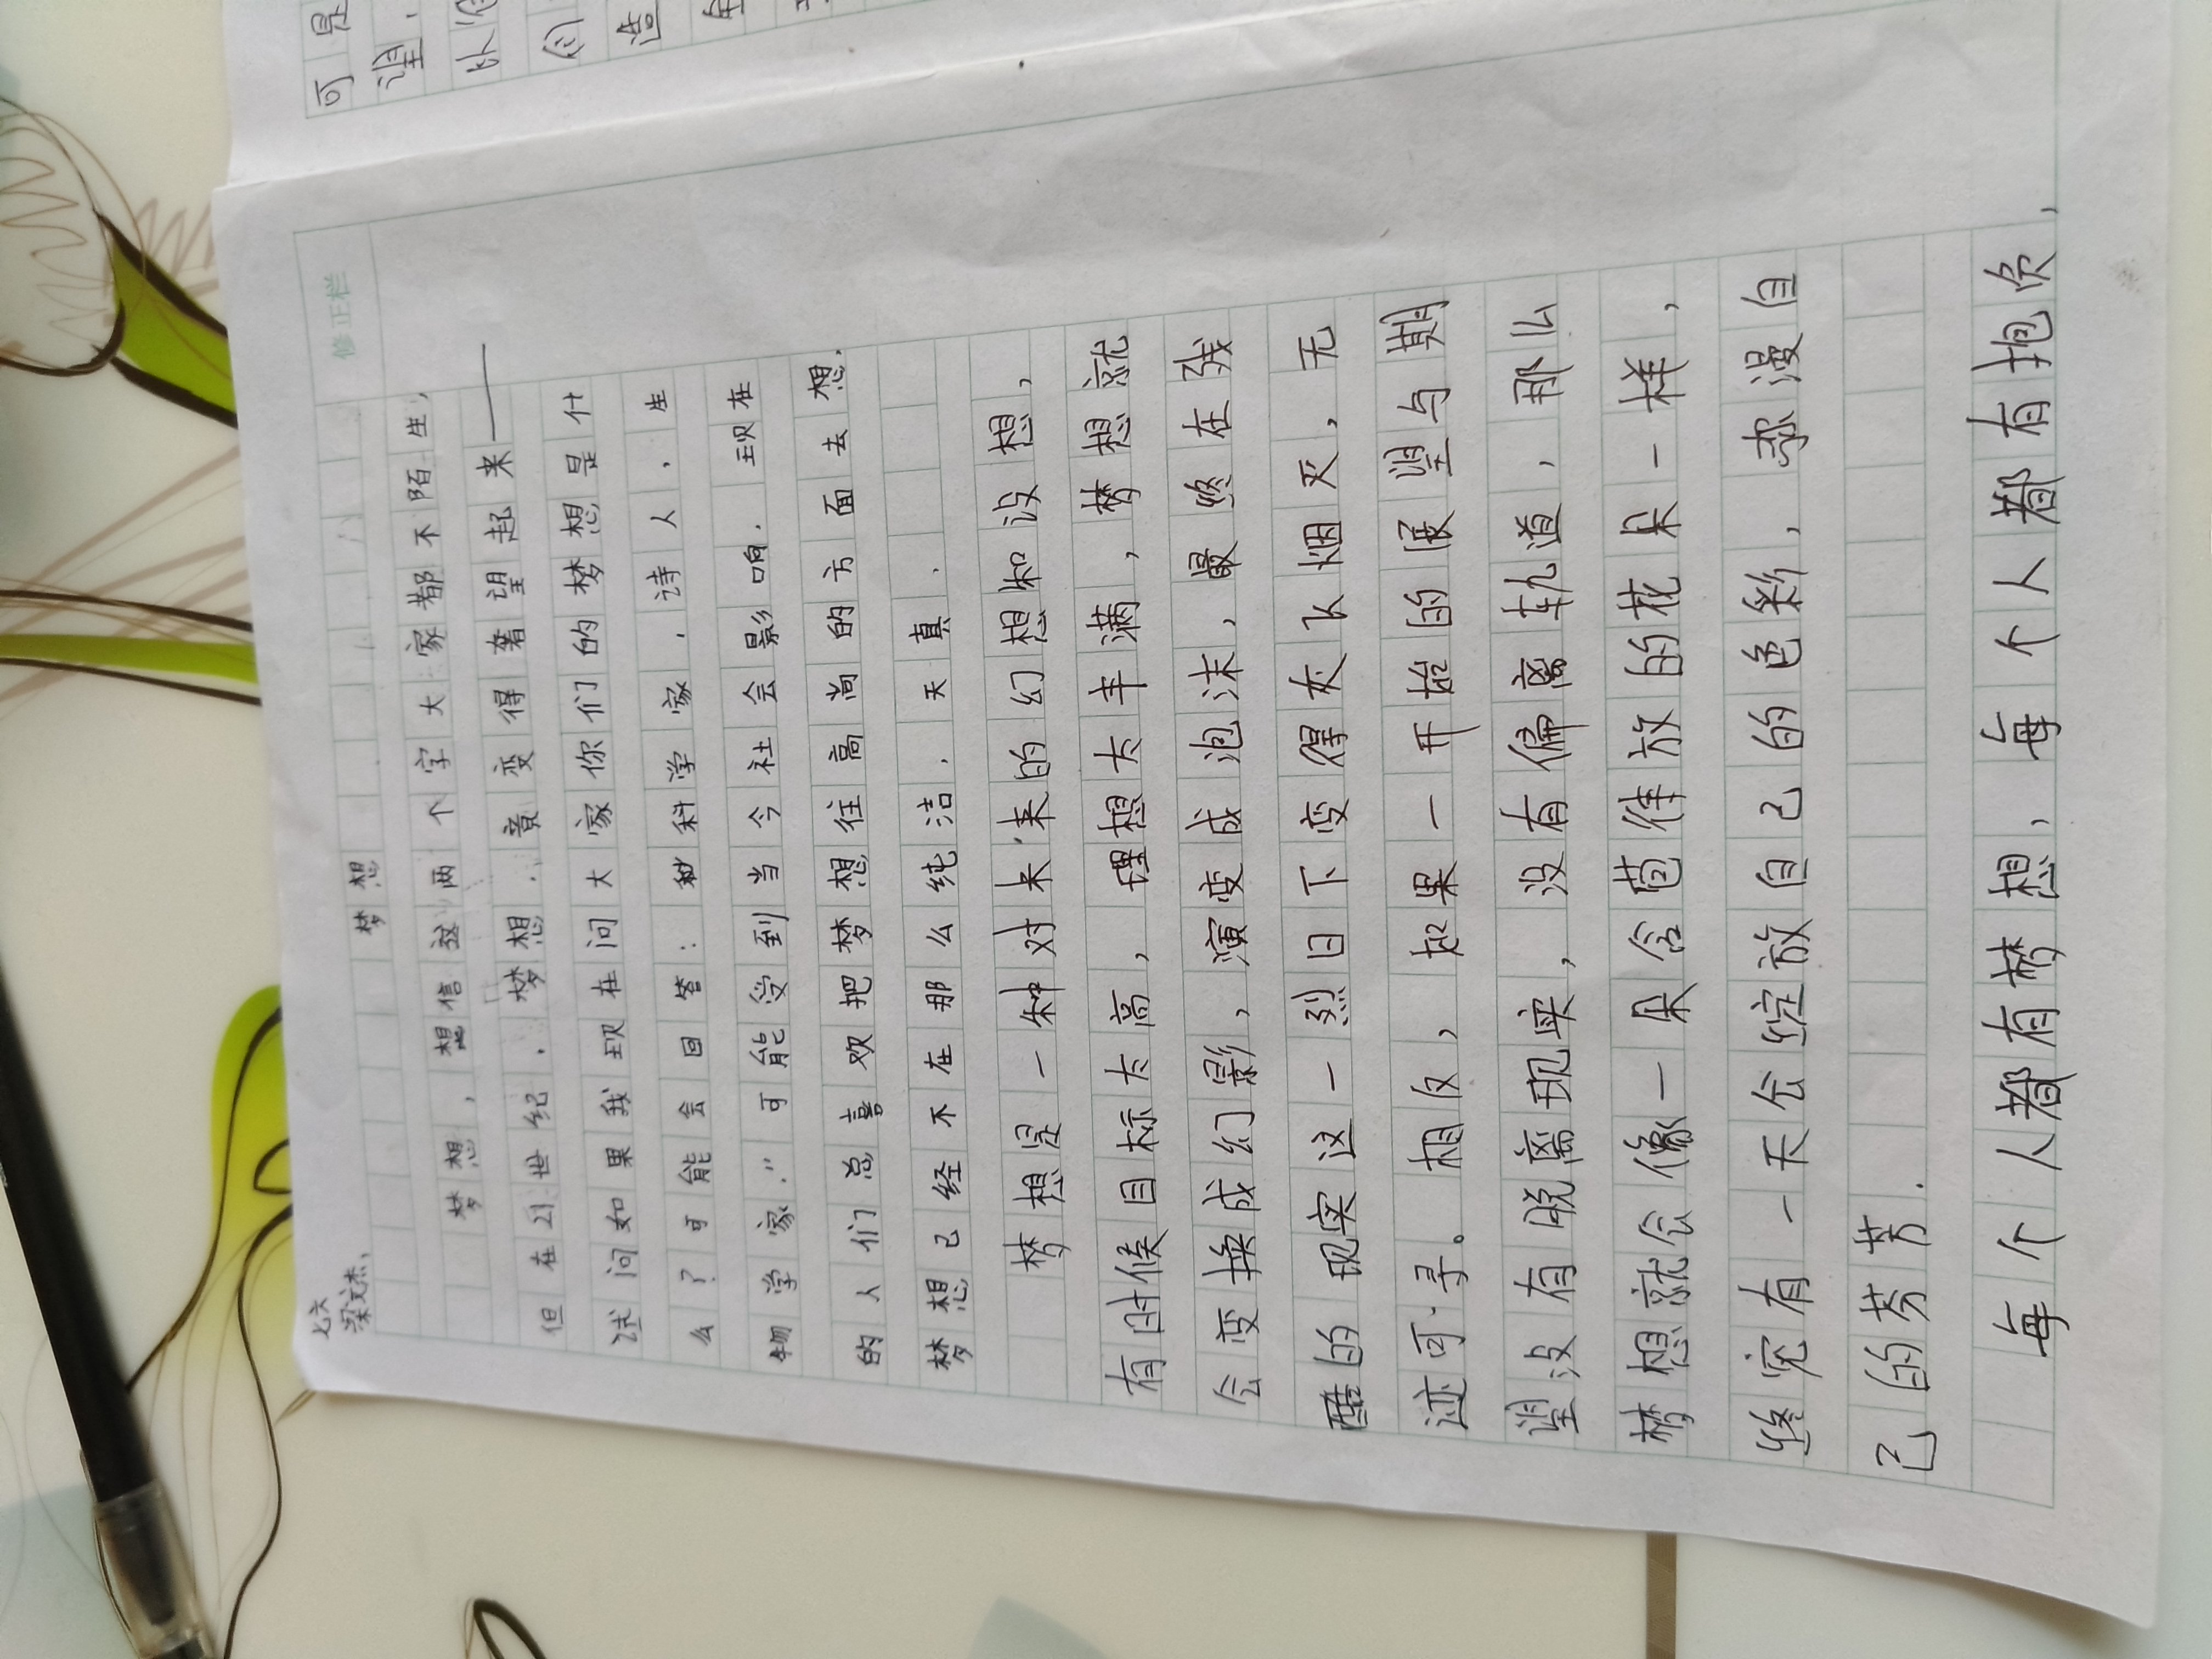 修正栏
七六
梁文杰
梦想
梦想,想信这两个字大家都不陌生,
但在21世纪.梦想.竟变得奢望起来——
试问如果我现在问大家你们的梦想是什
么?可能会回答:科学家.诗人.生
物学家."可能受到当今社会影响.现在
的人们总喜欢把梦想往高尚的方面去想.
梦想已经不在那么纯洁.天真.
梦想是一种对未来的幻想和设想,
有时候目标太高,理想太丰满,梦想就
会变换成幻影,演变成泡沫,最终在残
酷的现实这一烈日下变得灰飞烟灭,无
迹可寻。相反,如果一开始的展望与期
望没有脱离现实,没有偏离轨道,那么
梦想就会像一朵含苞待放的花朵一样,
终究有一天会绽放自己的色彩,弥漫自
己的芬芳.
每个人都有梦想,每个人都有抱负,
可是
望.